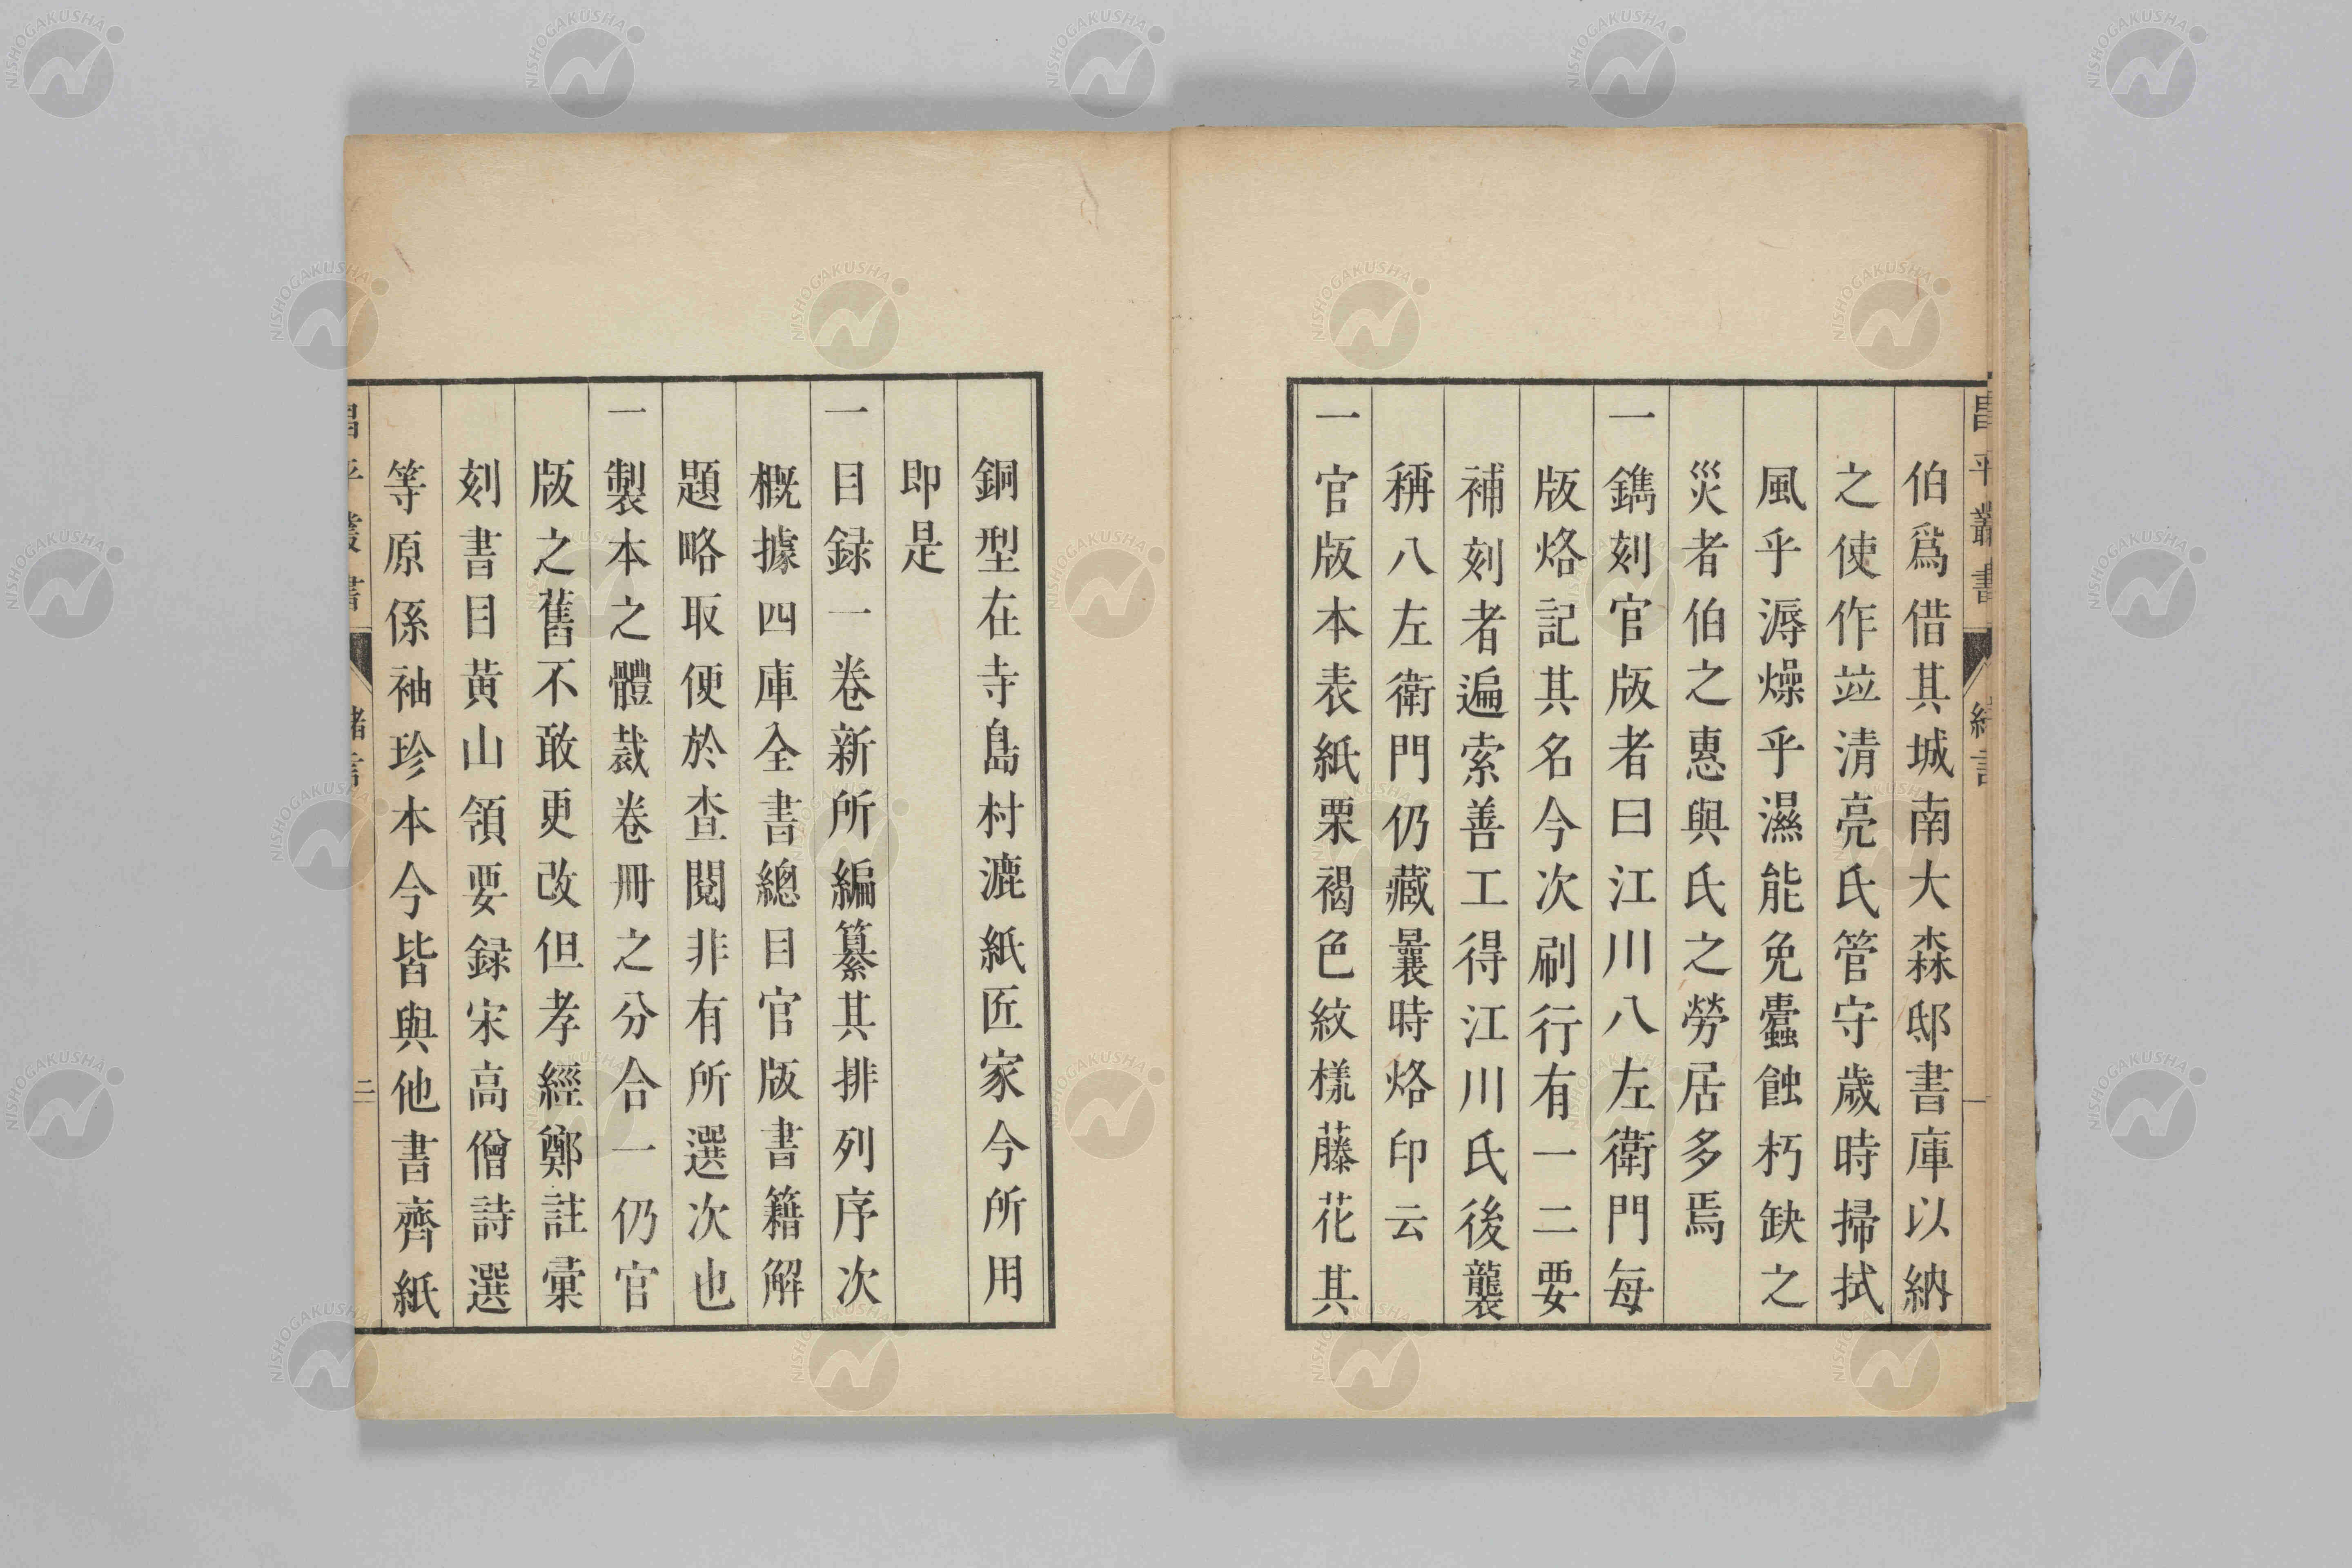 伯爲借其城南大森邸書庫以納
之使作竝清亮氏管守歲時掃拭
風乎溽燥乎濕能免蠹蝕朽缺之
災者伯之惠與氏之勞居多焉
一鐫刻官版者曰江川八左衛門每
版烙記其名今次刷行有一二要
補刻者遍索善工得江川氏後襲
稱八左衛門仍藏曩時烙印云
一官版本表紙栗褐色紋樣藤花其
銅型在寺島村漉紙匠家今所用
即是
一目録一卷新所編纂其排列序次
概據四庫全書總目官版書籍解
題略取便於查閱非有所選次也
一製本之體裁卷冊之分合一仍官
版之舊不敢更改但孝經鄭註彙
刻書目黃山領要録宋高僧詩選
等原係袖珍本今皆與他書齊紙
昌平叢書
緒言
二
NISHOGAKUSHA